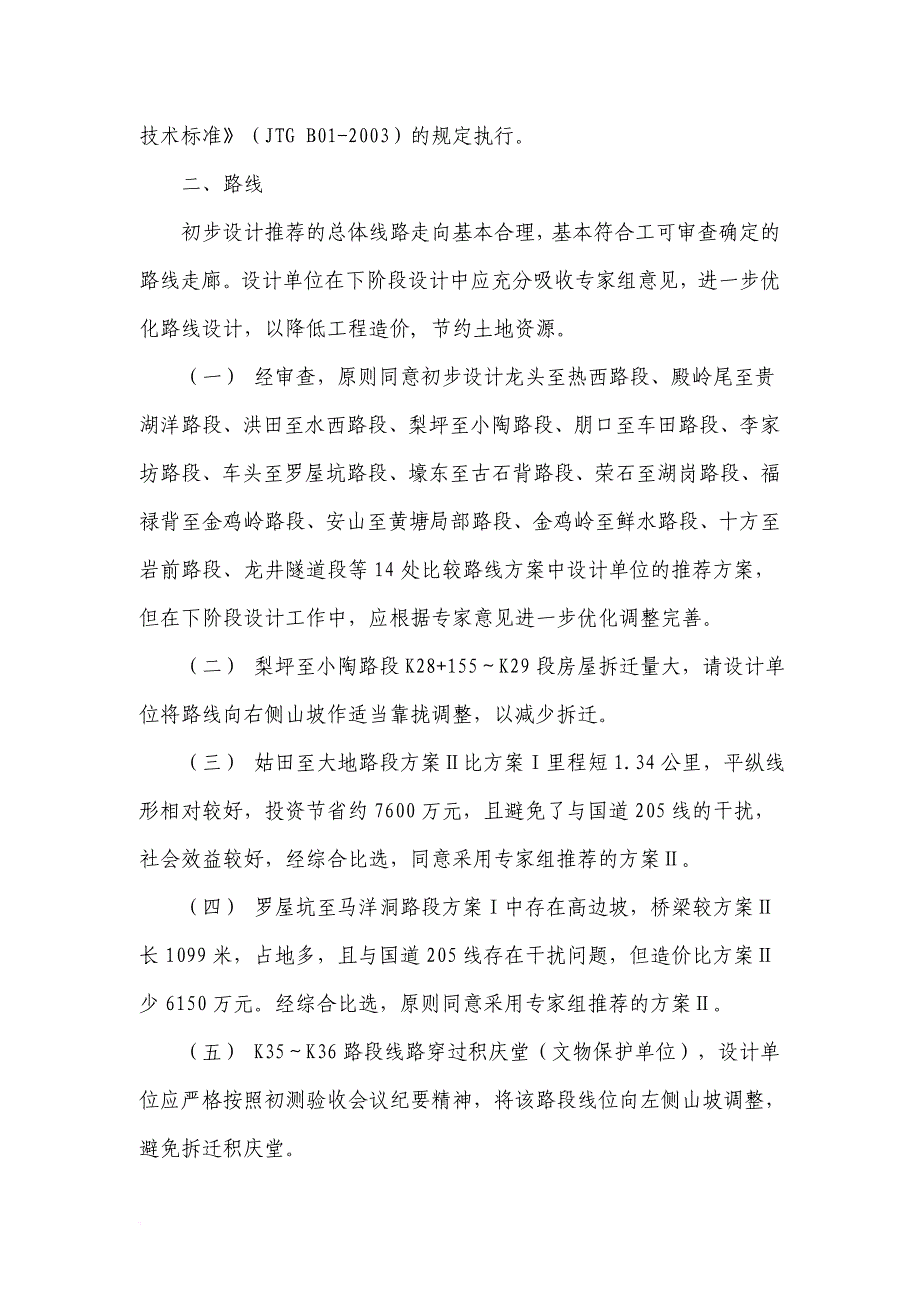 技术标准》（JTG B01-2003）的规定执行。
二、路线
初步设计推荐的总体线路走向基本合理，基本符合工可审查确定的
路线走廊。设计单位在下阶段设计中应充分吸收专家组意见，进一步优
化路线设计，以降低工程造价，节约土地资源。
（一） 经审查，原则同意初步设计龙头至热西路段、殿岭尾至贵
湖洋路段、洪田至水西路段、梨坪至小陶路段、朋口至车田路段、李家
坊路段、车头至罗屋坑路段、壕东至古石背路段、荣石至湖岗路段、福
禄背至金鸡岭路段、安山至黄塘局部路段、金鸡岭至鲜水路段、十方至
岩前路段、龙井隧道段等 14 处比较路线方案中设计单位的推荐方案，
但在下阶段设计工作中，应根据专家意见进一步优化调整完善。
（二） 梨坪至小陶路段 K28+155～K29 段房屋拆迁量大，请设计单
位将路线向右侧山坡作适当靠拢调整，以减少拆迁。
（三） 姑田至大地路段方案Ⅱ比方案Ⅰ里程短 1.34 公里，平纵线
形相对较好，投资节省约 7600 万元，且避免了与国道 205 线的干扰，
社会效益较好，经综合比选，同意采用专家组推荐的方案Ⅱ。
（四） 罗屋坑至马洋洞路段方案Ⅰ中存在高边坡，桥梁较方案Ⅱ
长 1099 米，占地多，且与国道 205 线存在干扰问题，但造价比方案Ⅱ
少 6150 万元。经综合比选，原则同意采用专家组推荐的方案Ⅱ。
（五） K35～K36 路段线路穿过积庆堂（文物保护单位），设计单
位应严格按照初测验收会议纪要精神，将该路段线位向左侧山坡调整，
避免拆迁积庆堂。